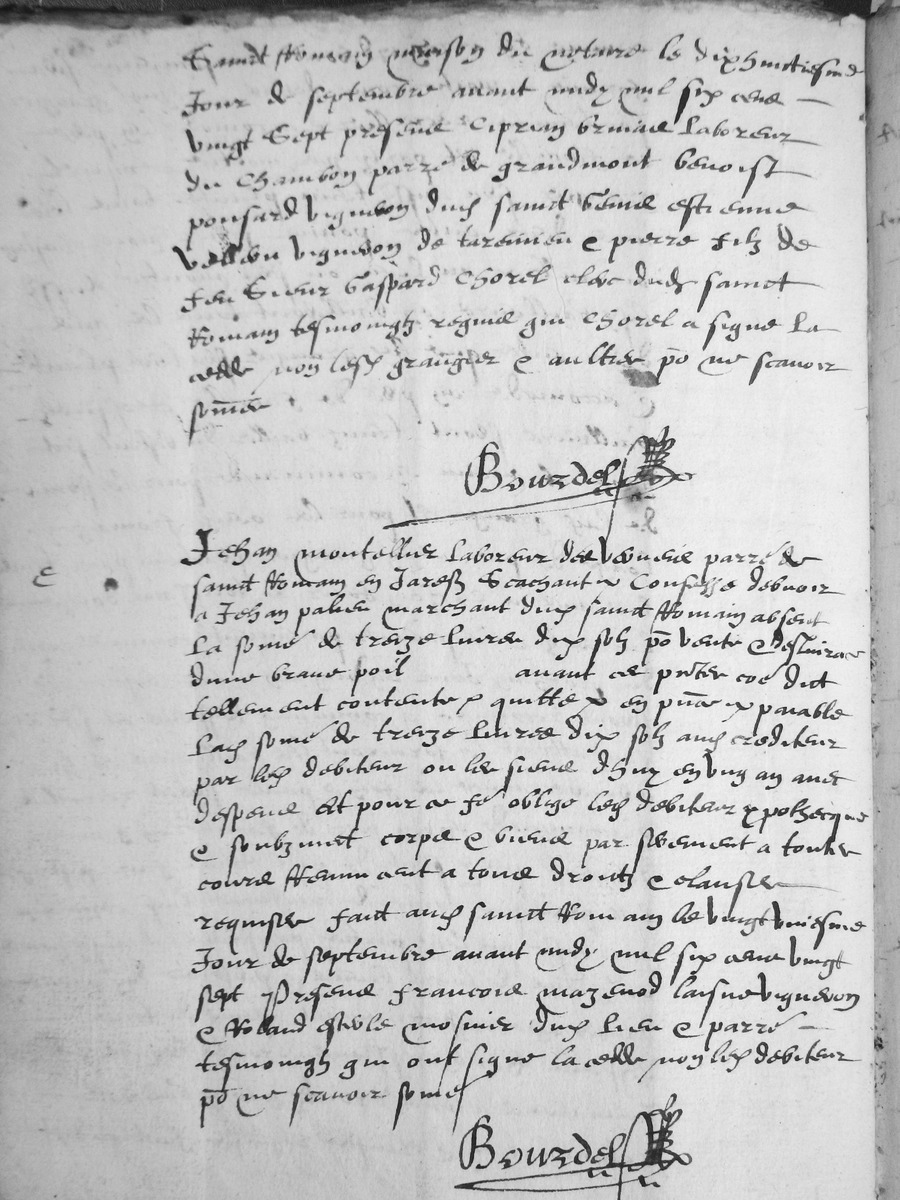 Sainct Romain maison du notaire le dixhuictiesme
Jour de septembre avant midy mil six cens
vingt Sept presens Ciprian laboreur
du Chambon parre de grandmont benoist
ponsard vigneron dud sainct Genis estienne
vigneron de tarennieu & pierre filz de
feu Sieur Gaspard Chorel clerc dud sainct
Romain tesmoingtz requis qui Chorel a signe la
cedde non lesd grangier & aultres po ne scavoir
sommes
Bourdel
Jehan montellier laboreur de parre de
sainct Romain en Jarestz Scachant & Confesse debvoir
a Jehan palieu marchant dud sainct Romain absent
la some de treize livres dix solz po vente & deslivrance
dune brave poil avant ce pnter coe dict
tellement contente & quitte & en pnce & paiable
lad some de treize livres dix solz aud crediteur
par led debiteur ou les siens dhuy en ung an avec
despens Et pour ce fe oblige led debiteur ypothecque
& soubzmect corps & biens par serement a toutes
cours Renunceant a tous droictz & clauses
requises faict aud sainct Romain le vingtuniesme
Jour de septembre avant midy mil six cens vingt
sept Presens francois mazenod laisne vigneron
& Rolland esteule mosnier dud lieu & parre
tesmoingtz qui ont signe la cedde non led debiteur
po ne scavoir some
Bourdel